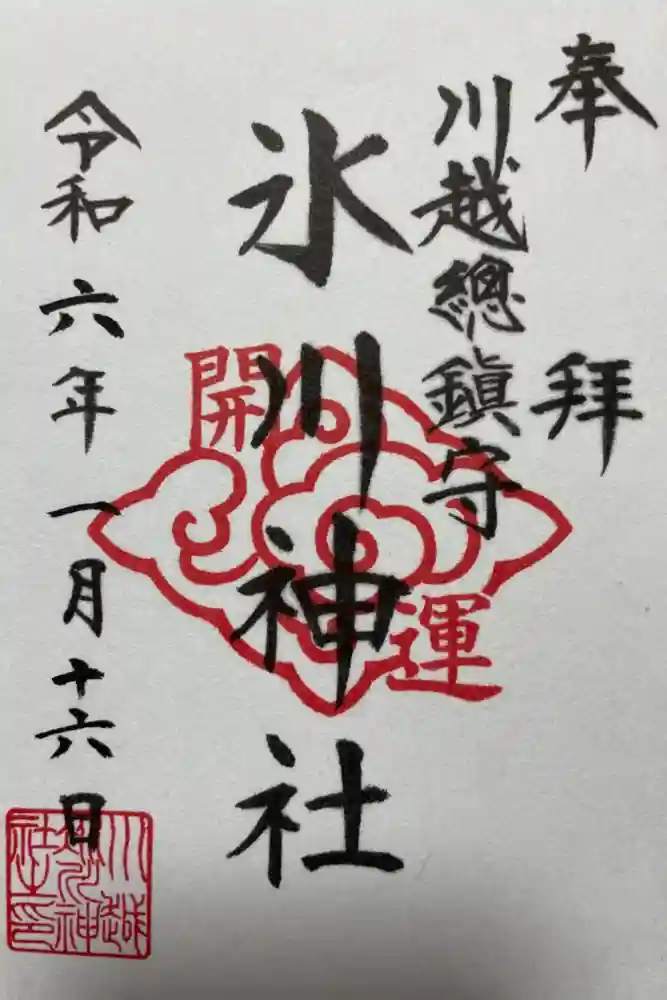 奉拜
川越總鎮守
氷川神社
開運
令和六年一月十六日
川越氷川神社之印